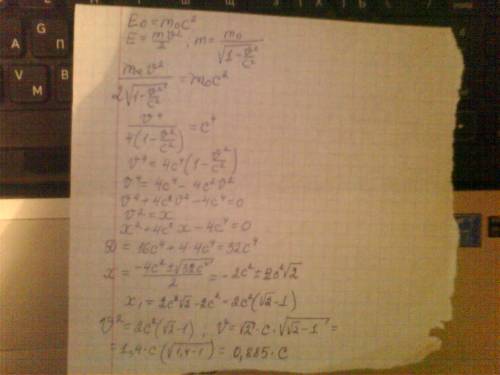 E₀ = m₀c²
E = mv²/2 ; m = m₀/√(1 - v²/c²)
m₀v²/(2√(1 - v²/c²)) = m₀c²
v⁴/(4(1 - v²/c²)) = c⁴
v⁴ = 4c⁴(1 - v²/c²)
v⁴ = 4c⁴ - 4c²v²
v⁴ + 4c²v² - 4c⁴ = 0
v² = x
x² + 4c²x - 4c⁴ = 0
D = 16c⁴ + 4·4c⁴ = 32c⁴
x = (-4c² ± √(32c⁴))/2 = -2c² ± 2c²√2
x₁ = 2c²√2 - 2c² = 2c²(√2 - 1)
v² = 2c²(√2 - 1) ; v = √2 · c · √(√2 - 1) =
= 1,4 · c (√(1,4 - 1)) = 0,885 · c
А
П
V
М
В